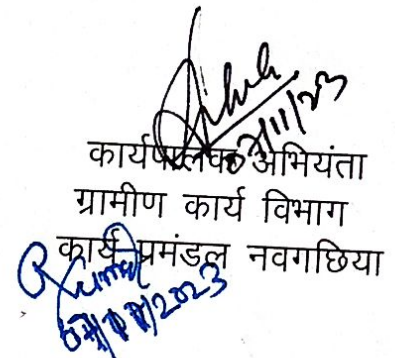 07/11/23
कार्यपालक अभियंता
ग्रामीण कार्य विभाग
कार्य प्रमंडल नवगछिया
07/11/2023